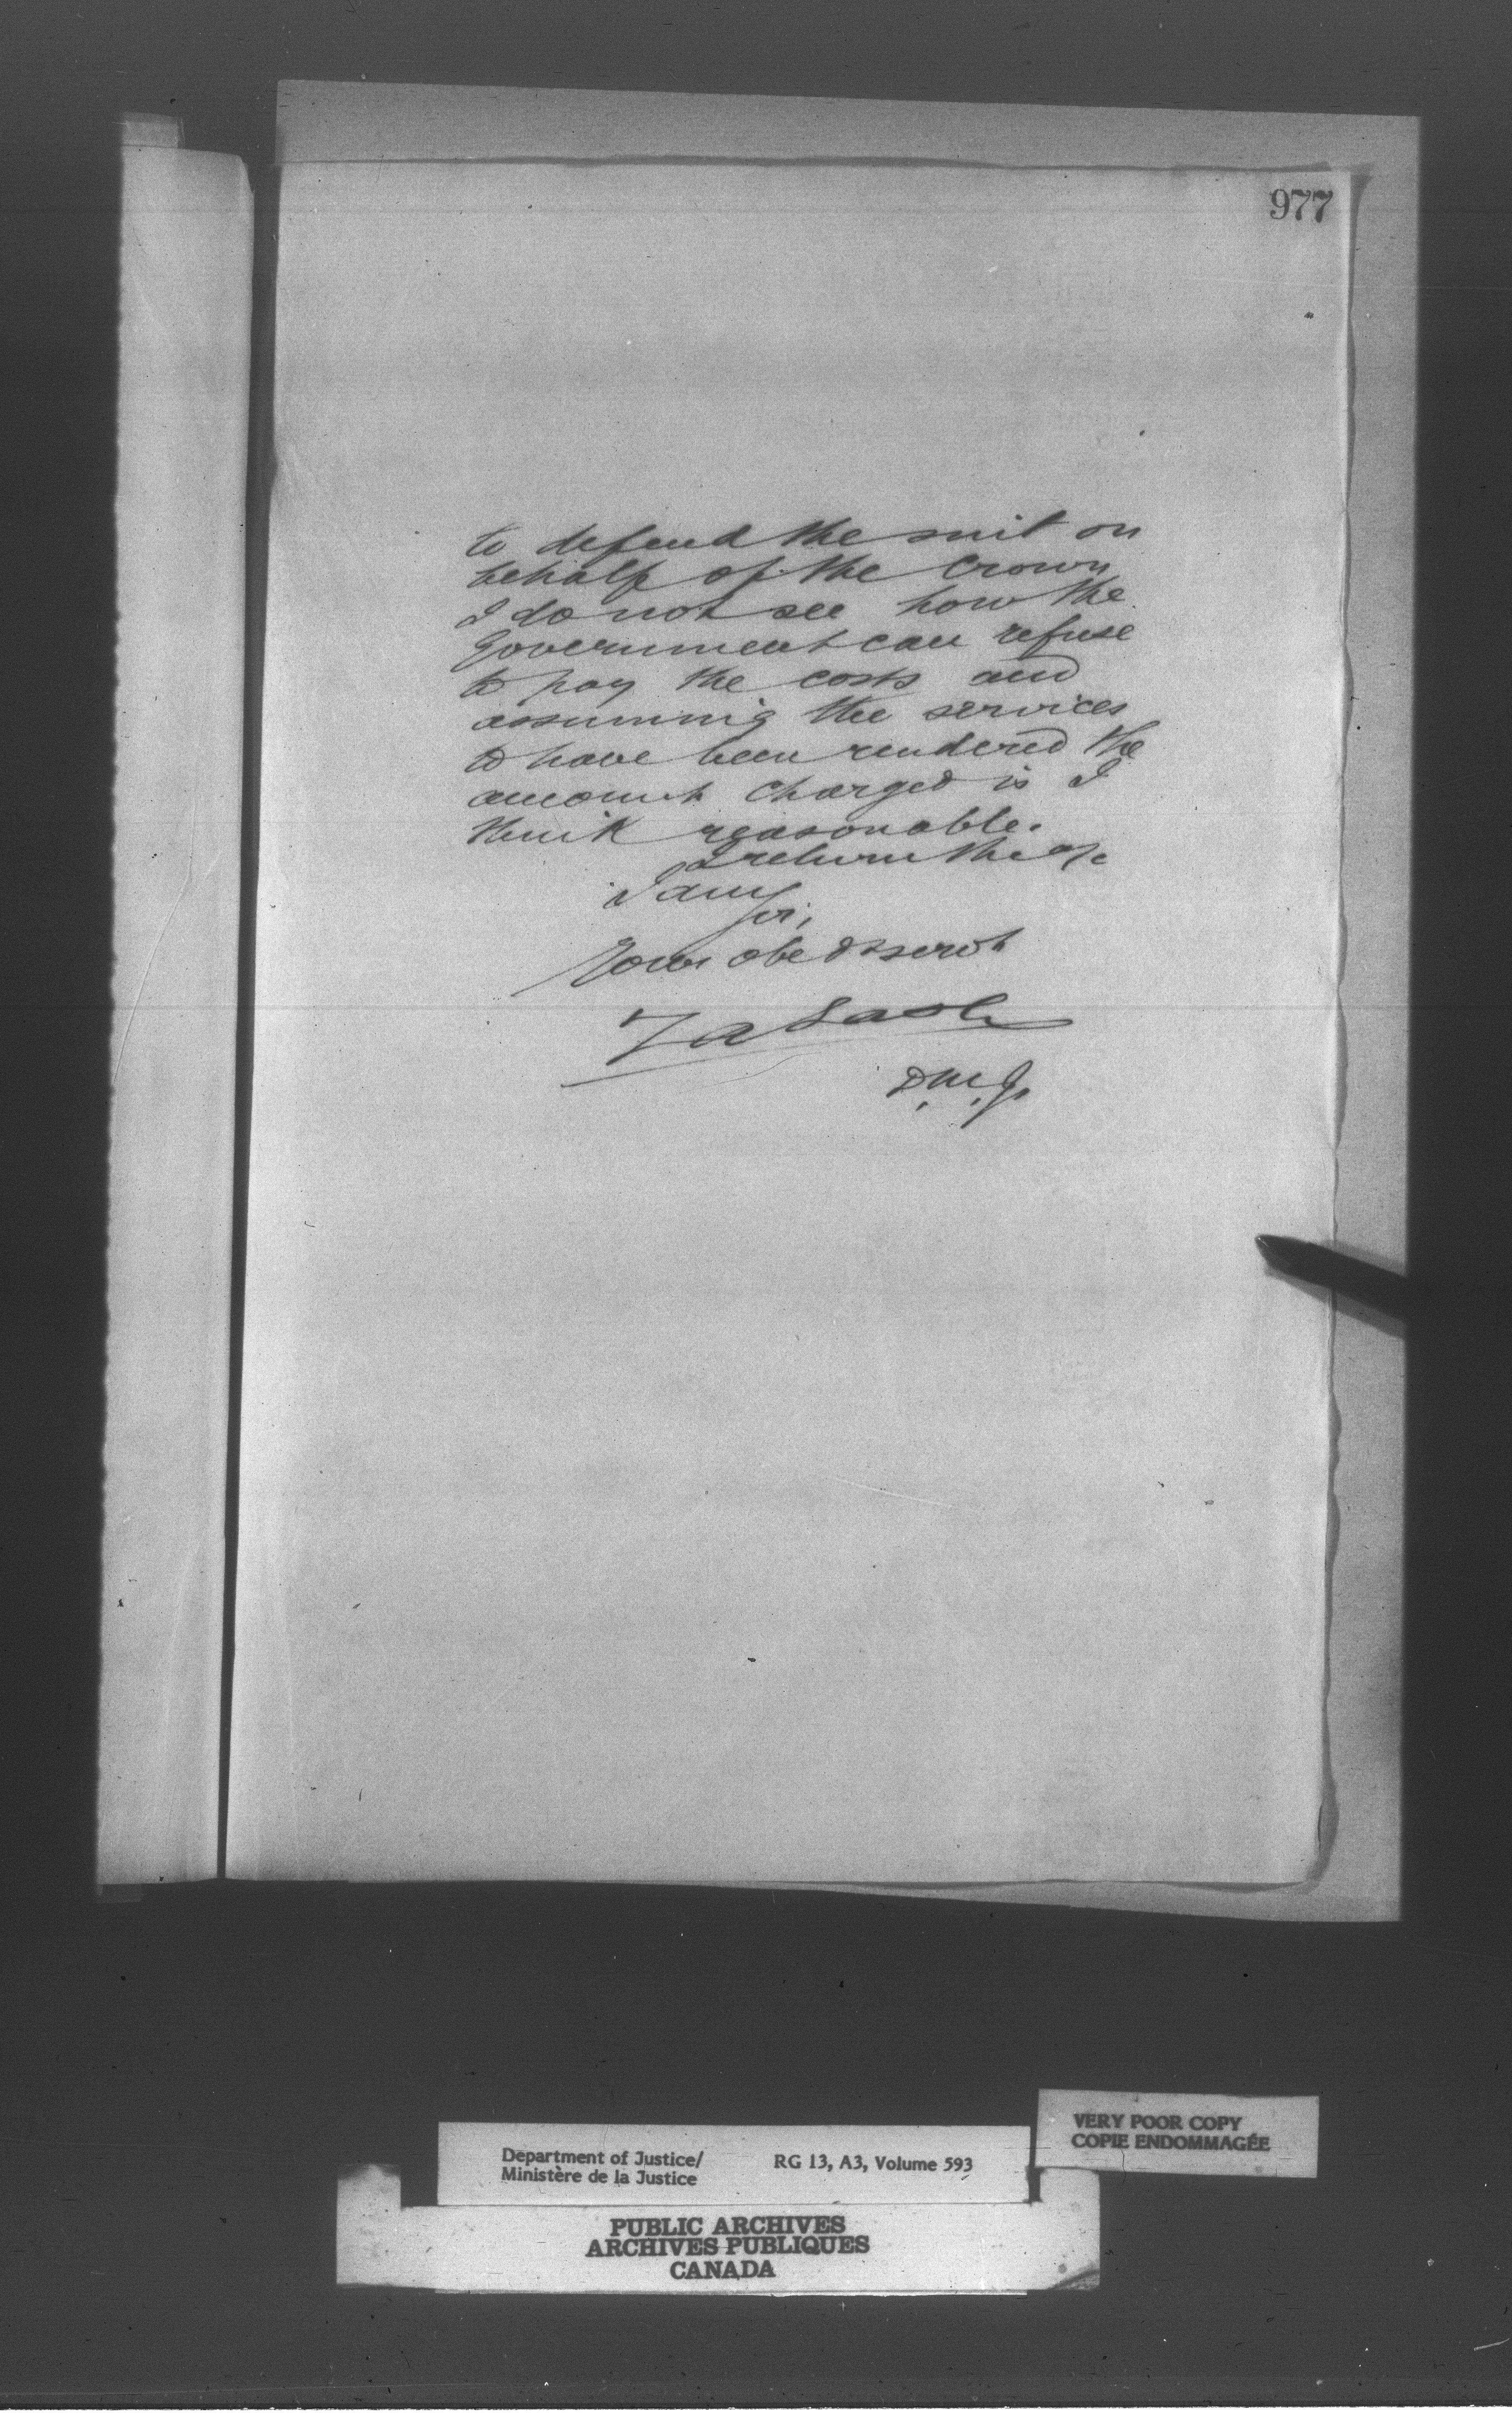 977
to defend the suit on
behalf of the Crown
I do not see how the
Government can refuse
to pay the costs and
assuming the services
to have been rendered the
amount charged is I
think reasonable.
I return the a/c
I am
Sir,
Your obedt servt
ZA Lash
D.M.J.
VERY POOR COPY
COPIE ENDOMMAGÉE
Department of Justice/ RG 13, A3, Volume 593
Ministère de la Justice
PUBLIC ARCHIVES
ARCHIVES PUBLIQUES
CANADA